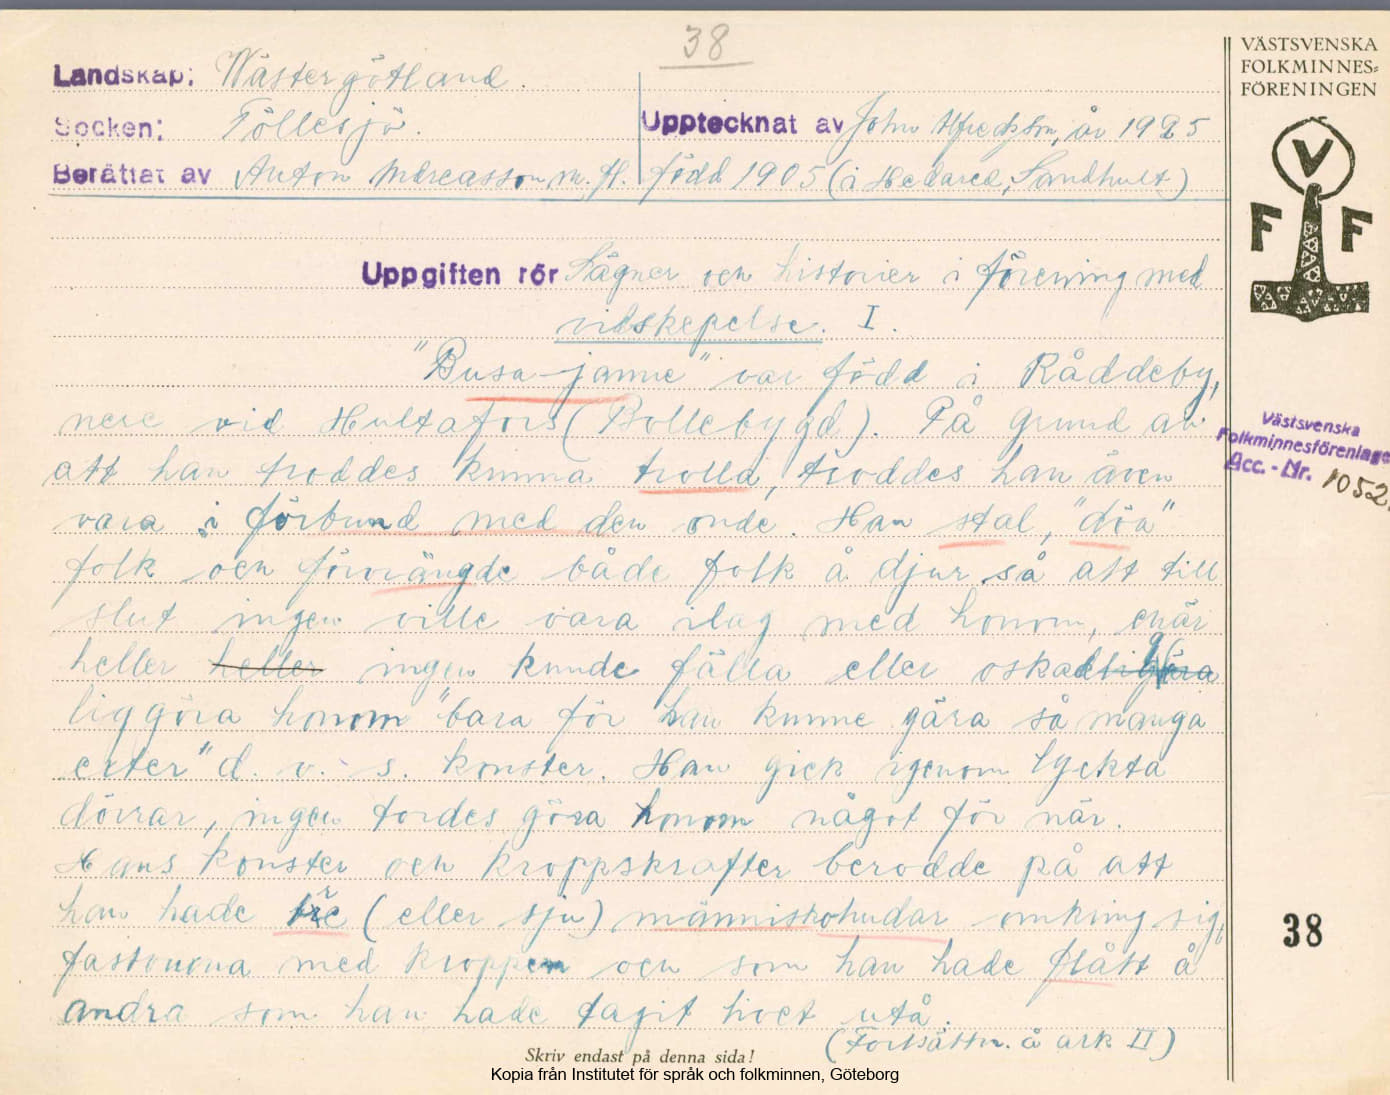 38
Landskap: Wästergötland.
Socken: Töllesjö.
Upptecknat av John Alfredsson, år 1925
Berättat av Anton Andreasson m. fl.
född 1905 (i Hedared, Sandhult)
Uppgiften rör Sägner och historier i förening med
vidskepelse. I.
"Busa-janne" var född i Råddeby,
nere vid Hultafors (Bollebygd). På grund av
att han troddes kunna trolla, troddes han även
vara i förbund med den onde. Han stal, "döa"
folk och förvrängde både folk å djur så att till
slut ingen ville vara ilag med honom, enär
heller heller ingen kunde fälla eller oskad
liggöra honom "bara för han kunne gära så många
erter" d. v. s. konster. Han gick igenom lyckta
dörrar, ingen tordes göra honom något för när.
Hans konster och kroppskrafter berodde på att
han hade tre (eller sju) människohudar omkring sig,
fastvuxna med kroppen och som han hade flått å
andra som han hade tagit livet utå.
(Fortsättn. å ark II)
Skriv endast på denna sida!
Kopia från Institutet för språk och folkminnen, Göteborg
VÄSTSVENSKA
FOLKMINNES-
FÖRENINGEN
V
F F
Västsvenska
Folkminnesföreningen
Acc.-Nr. 1052.
38